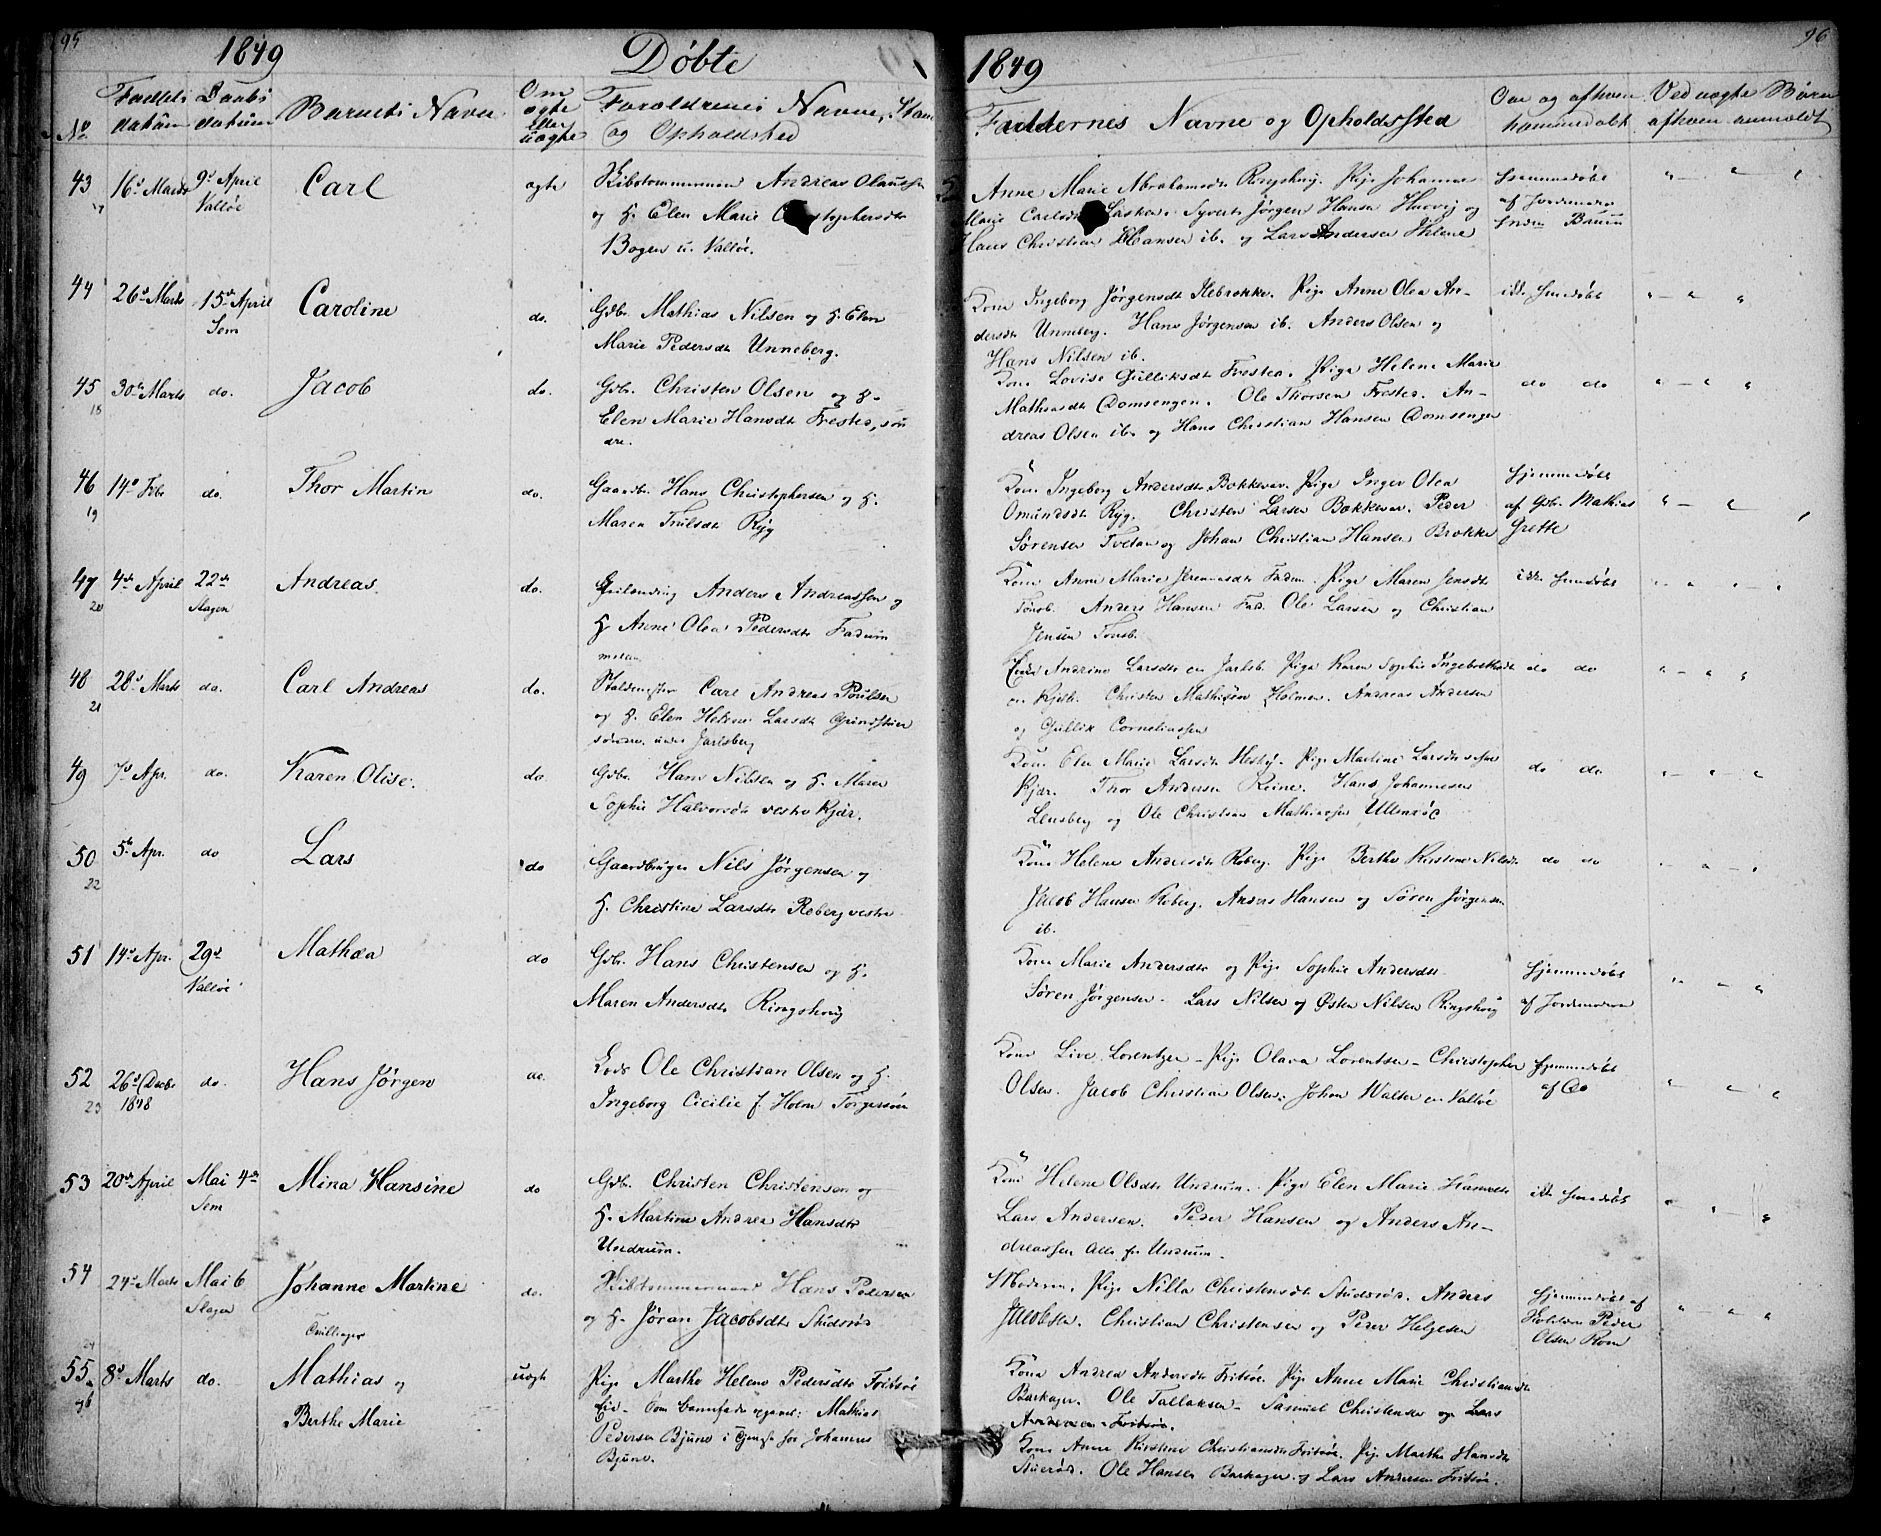 95
1849
Døbte
1849
96
No
Fødsels datum
Daabs datum
Barnets Navn
Om ægte eller uægte
Forældrenes Navne, Stand
og Opholdsted
Faddernes Navne og Opholdssted
Om og af hvem
hjemmedøbt
Ved uægte Børn
af hvem anmeldt
43
16d Marts
9d April
Valløe
Carl
ægte
Skibstømmermand Andreas Olaussen
og H. Elen Marie Christophersdtr
Bogen u. Valløe.
Anne Marie Abrahamsdtr Ringshoug. Pige Johanne
Marie Carlsdtr Syvert Jørgen Hansen og
Hans Christian Hansen ib. og Lars Andersen
Hjemmedøbt
af Jordemoder
44
26d Marts
15de April
Sem
Caroline
do.
Gdbr. Mathias Nilsen og H. Elen
Marie Pedersdtr Unneberg.
Kone Ingeborg Jørgensdt Ilebrekke. Pige Anne Olea An-
dersdt Unneberg. Hans Jørgensen ib. Anders Olsen og
Hans Nilsen ib.
ikke hjemdøbt
45
18
30te Marts
do.
Jacob
do.
Gdbr. Christen Olsen og H.
Elen Marie Hansdtr Frestea, søn
dre.
Kone Lovise Gulliksdt Frestea. Pige Helene Marie
Mathisdt Domsengen. Ole Thorsen Frestea. An-
dreas Olsen ib. og Hans Christian Hansen Domsengen
do do
46
19
14d Febr
do.
Thor Martin
do.
Gaardbr. Hans Christophersen og H.
Maren Trulsdt Ryg
Kone Ingeborg Andersdt Bekkevar. Pige Inger Olea
Omundsdt Ryg. Christen Larsen Bekkevar. Peder
Sørensen Tveten og Johan Christian Hansen Brække
Hjemmedøbt
af Gbr. Mathias
Grette
47
20
4de April
22de
Slagen
Andreas
do.
Anders Andreassen og
H Anne Olea Pedersdtr Fadum
mellem
Kone Anne Marie Fadum. Pige Maren Jensdt
Tønsb. Anders Hansen Fad. Ole Larsen og Christian
Jensen Tønsb.
ikke hjemdøbt
48
21
28d Marts
do.
Carl Andreas
do.
Staldmester Carl Andreas Poulsen
og H. Elen Helene Larsdt
søndre, under Jarlsberg
Andrine Larsdt Jarlsb. Pige Karen Sophie
Christen Mathisen Holmen. Andreas Andersen
og Gullik Corneliussen
do do
49
7d Apr.
do.
Karen Olise.
do.
Gdbr. Hans Nilsen og H. Maren
Sophie Halvorsdt vestre Kjær.
Kone Elen Marie Larsdt Hesby. Pige Martine Larsdt
Kjær. Thor Andersen Reine. Hans Johannesen
Lensberg og Ole Christian Mathiassen Ullenrøe
do do
50
22
5te Apr.
do
Lars
do
Gaardbruger Nils Jørgensen og
H. Christine Larsdtr Roberg vestre
Kone Helene Andersdt Roberg. Pige Berthe Kirstine Nilsdt
Jacob Hansen Roberg. Anders Hansen og Søren Jørgensen
ib.
do do
51
14d Apr.
29d
Valløe
Mathea
do
Gdbr. Hans Christensen og H.
Maren Andersdtr Ringshoug
Kone Marie Andersdtr og Pige Sophie Andersdtr
Søren Jørgensen. Lars Nilsen og Østen Nilsen Ringshoug
Hjemmedøbt
af Jordemoderen
52
23
26d Decbr
1848
do.
Hans Jørgen
do.
Lods Ole Christian Olsen og H.
Ingeborg Cicilie f. Holm Torgersøen
Kone Live Lorentzen - Pige Olava Lorentsen - Christopher
Olsen. Jacob Christian Olsen. Johan Walter Valløe
Hjemmedøbt
af Do
53
20de April
Mai 4de
Sem
Mina Hansine
do
Gdbr. Christen Christensen og
H. Martine Andrea Hansdtr
Undrum.
Kone Helene Olsdtr Undrum. Pige Elen Marie Hansdtr
Lars Andersen. Peder Hansen og Anders An-
dreassen Alle fra Undrum.
ikke hjemdøbt
54
24d Marts
Mai 6
Slagen
Johanne Martine
do.
Skibstømmermand Hans Pedersen
og H. Jøran Jacobsdt Stuerød
Moderen. Pige Nilla Christensdt Stuerød. Anders
Jacobsen. Christian Christensen og Peder Helgesen
Hjemmedøbt af
Peder
Olsen Rom
55 a
56
8d Marts
do.
Tvillinger
Mathias og
Berthe Marie
uægte
Pige Marthe Helene Pedersdtr Fritsøe
Eie - Som Barnefader opgives: Mathias
Pedersen Bjune i Tjeneste hos Johannes
Bjune.
Kone Andrea Andersdtr Fritsøe. Pige Anne Marie Christiansdt
Barkager. Ole Tallaksen - Samuel Christensen og Lars
Andersen - Fritsøe.
Kone Anne Kirstine Christiansdt Fritsøe. Pige Marthe Hansdt
Stuerød. Ole Hansen Barkager og Lars Andersen Fritsøe.